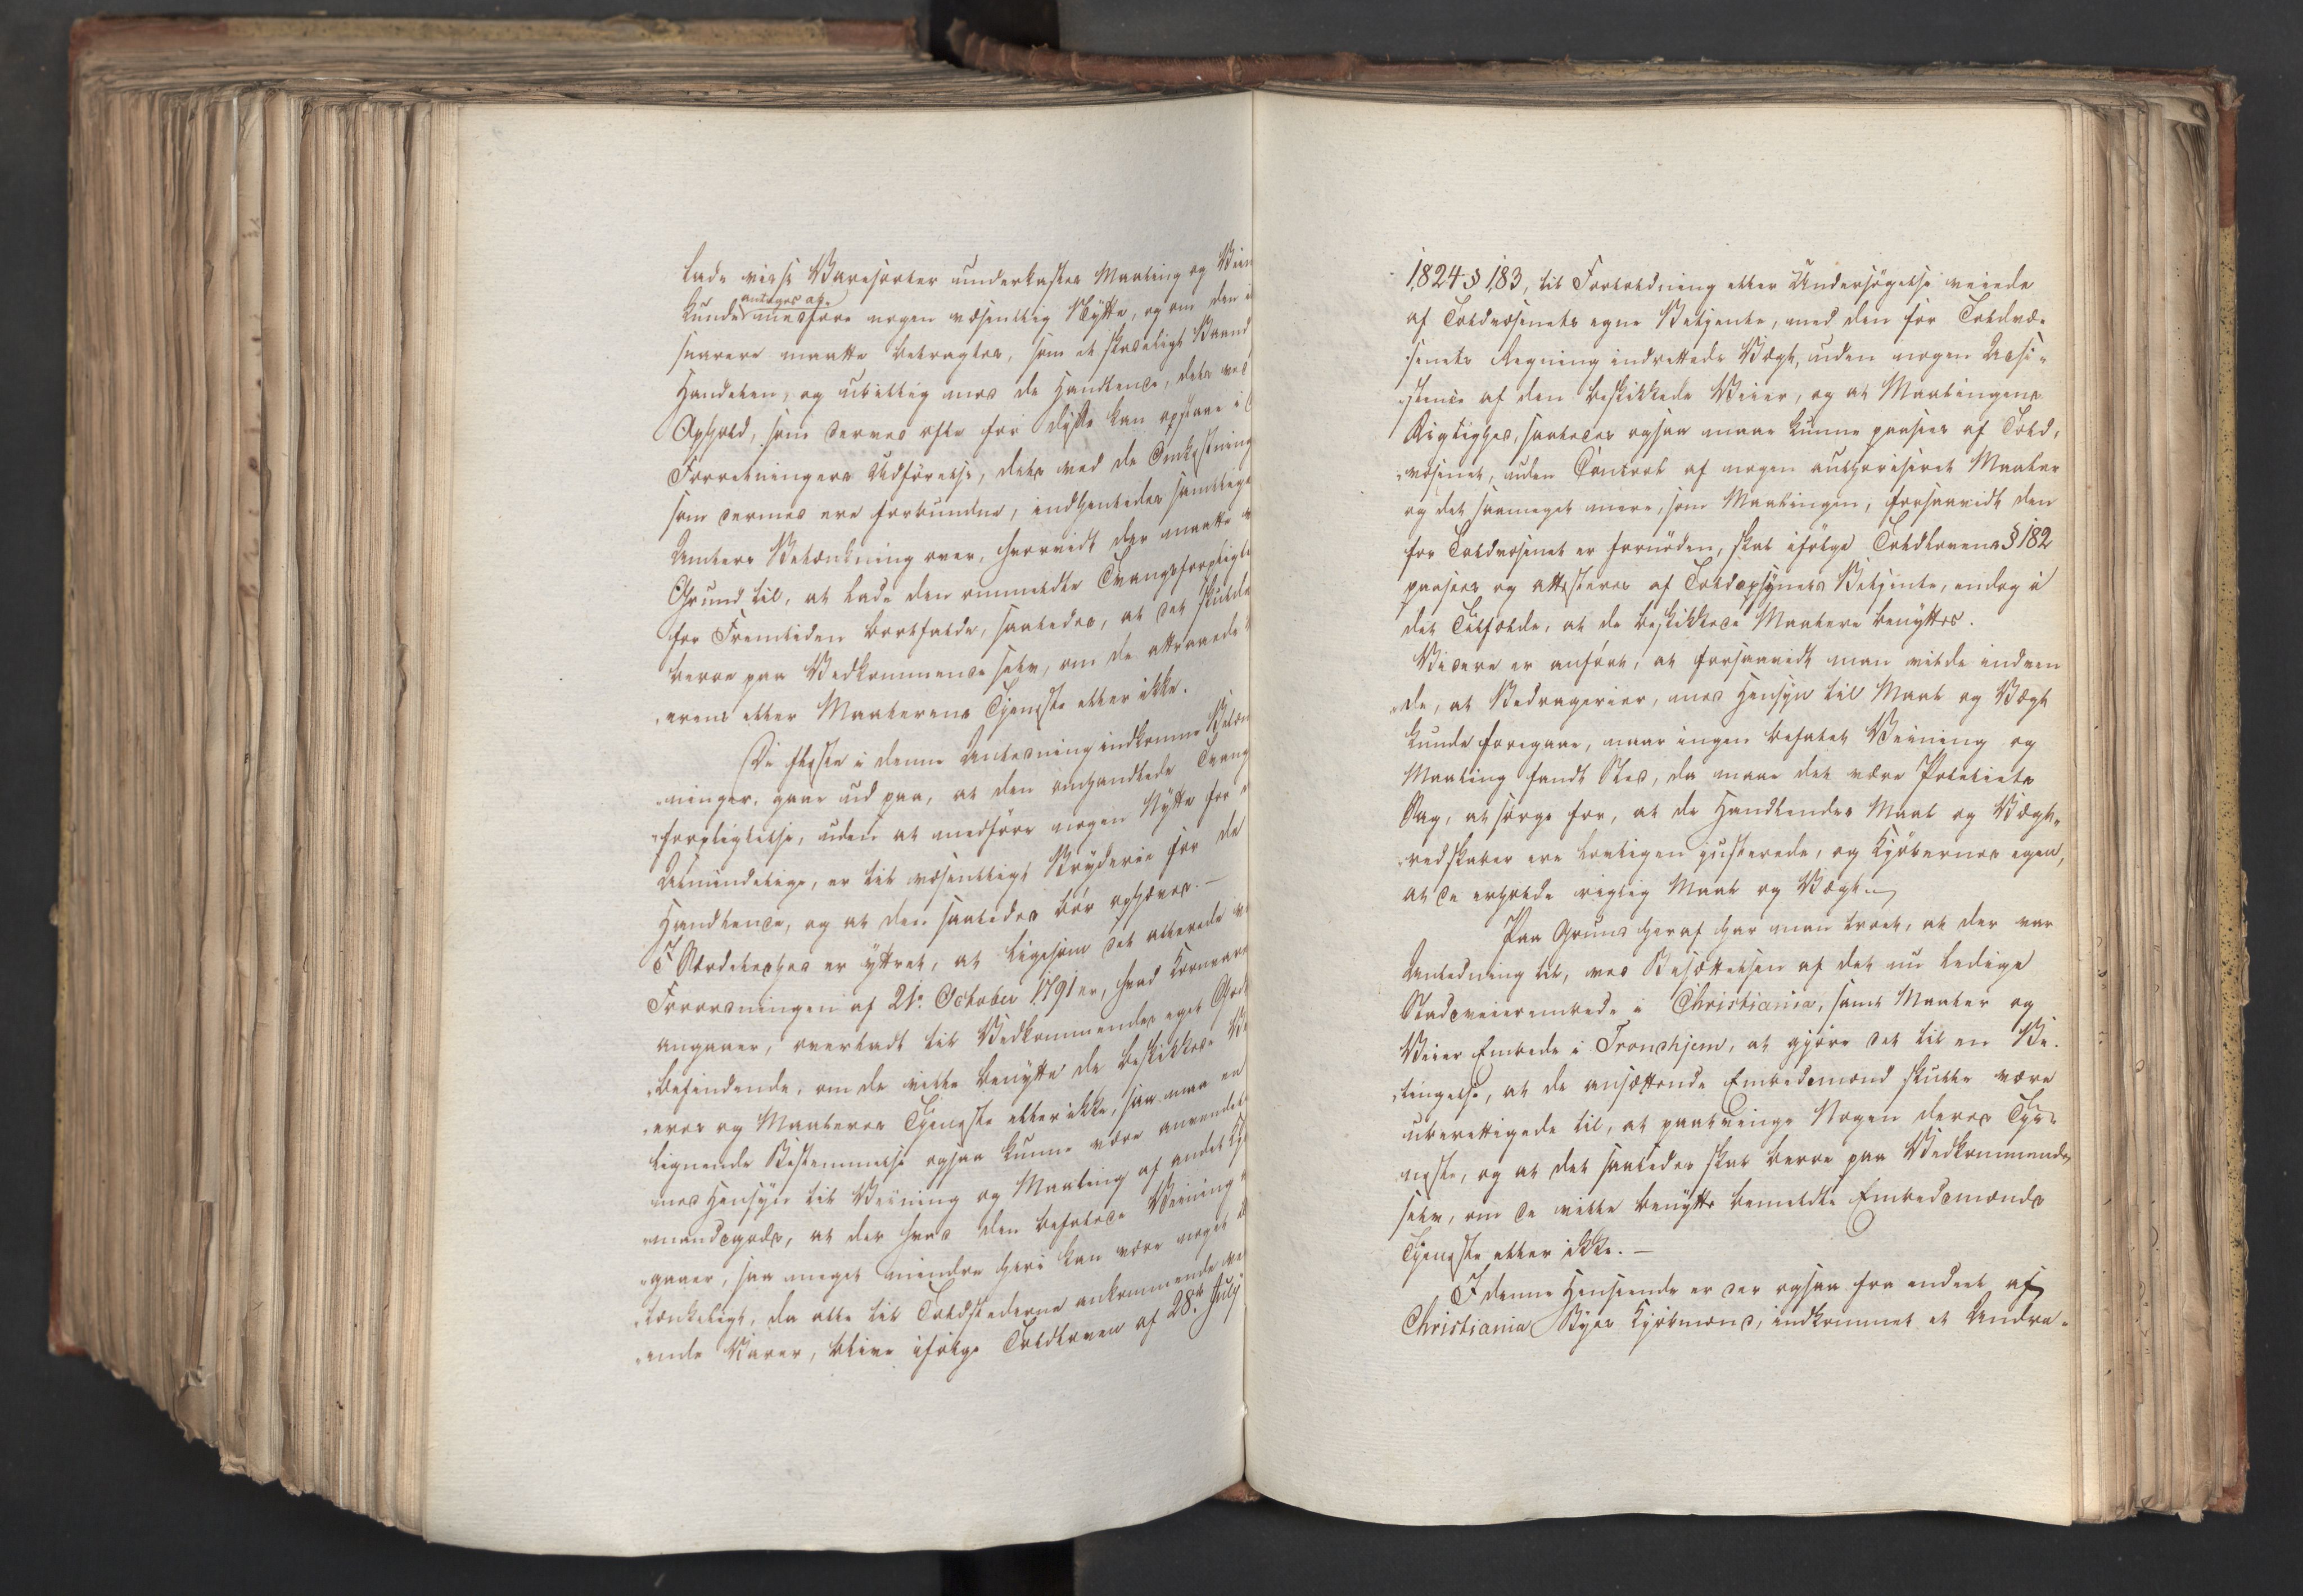 lade visse Varesorter underkastes Maaling og Vein
antages at
kunde medføre nogen væsentlig Nytte, og om den i
snarere maatte betragtes, som et skadeligt Baand
Handelen, og ubillig mod de Handlende, dels ved
Ophold, som derved ofte for disse kan opstaae i
Forretningers Udførelse, dels ved de Omkostning
som dermed ere forbundne, indhentedes samtlige
Amters Betænkning over, hvorvidt der maatte
Grund til, at lade den anmeldte Tvangsforpligt
for Fremtiden bortfalde, saaledes, at det skulde
beroe paa Vedkommende selv, om de attraaede
erens eller Maalerens Tjeneste eller ikke.
De fleste i denne Anledning indkomne Betæn
ninger, gaae ud paa, at den omhandlede Tvang
forpligtelse, uden at medføre nogen Nytte for
Almindelige, er til væsentligt Bryderie for de
Handlende, og at den saaledes bør ophæves. —
I Særdeleshed er yttret, at ligesom det allerede
Forordningen af 21de October 1791 er, hvad Kornvare
angaaer, overladt til Vedkommendes eget Godt
befindende, om de ville benytte de beskikkede V
eres og Maaleres Tjeneste eller ikke, saa maa en
lignende Bestemmelse ogsaa kunne være anvendel
med Hensyn til Veining og Maaling af andet Kjø
mandsgods, at der hvad den befalede Veining
gaaer, saa meget mindre heri kan være noget
tænkeligt, da alle til Toldstederne ankommende
ende Varer, blive ifølge Toldloven af 28de July
1824 § 183, til Fortoldning eller Undersøgelse veiede
af Toldvæsenets egne Betjente, med den for Toldvæ-
senets Regning indrettede Vægt, uden nogen Assi-
stence af den beskikkede Veier, og at Maalingens
Rigtighed, saaledes ogsaa maae kunne paasees af Told-
væsenet, uden Control af nogen authoriseret Maaler
og det saameget mere, som Maalingen, forsaavidt den
for Toldvæsenet er fornøden, skal ifølge Toldlovens § 182
paasees og attesteres af Toldopsynets Betjente, endog i
det Tilfælde, at de beskikkede Maalere benyttes.
Videre er anført, at forsaavidt man vilde indven
de, at Bedragerier, med Hensyn til Maal og Vægt
kunde foregaae, naar ingen befalet Veining og
Maaling fandt Sted, da maae det være Politiets
Sag, at sørge for, at de Handlendes Maal og Vægt-
redskaber ere lovligen justerede, og Kjøbernes egen,
at de erholde rigtig Maal og Vægt.
Paa Grund heraf har man troet, at der var
Anledning til, ved Besættelsen af det nu ledige
Stadsveierembede i Christiania, samt Maaler og
Veier Embede i Trondhjem, at gjøre det til en Be-
tingelse, at de ansættende Embedsmænd skulle være
uberettigede til, at paatvinge Nogen deres Tje-
neste, og at det saaledes skal beroe paa Vedkommende
selv, om de ville benytte bemeldte Embedsmænds
Tjeneste eller ikke. —
I denne Henseende er der ogsaa fra endeel af
Christiania Byes Kjøbmænd, indkommet et Andra-